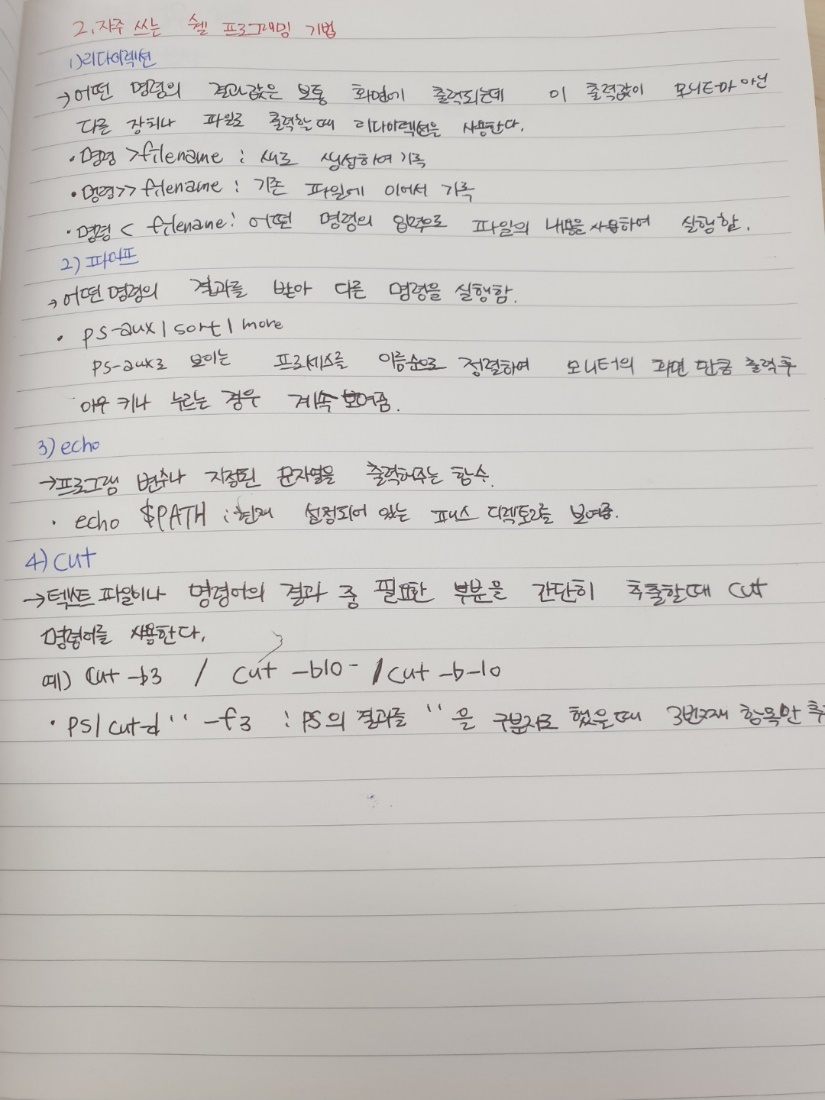 2. 자주 쓰는 쉘 프로그래밍 기법
1)리다이렉션
→어떤 명령의 결과값은 보통 화면에 출력되는데 이 출력값이 모니터가 아닌
다른 장치나 파일로 출력할때 리다이렉션을 사용한다.
• 명령 >filename : 새로 생성하여 기록
• 명령>> filename : 기존 파일에 이어서 기록
• 명령 < filename: 어떤 명령의 입력으로 파일의 내용을 사용하여 실행함.
2) 파이프
→어떤 명령의 결과를 받아 다른 명령을 실행함.
• ps-aux | sort | more
ps-aux로 보이는 프로세스를 이름순으로 정렬하여 모니터의 화면 만큼 출력 후
아무 키나 누르는 경우 계속 보여줌.
3) echo
→프로그램 변수나 지정된 문자열을 출력해주는 함수.
• echo $PATH : 현재 설정되어 있는 패스 디렉토리를 보여줌.
4) cut
→텍스트 파일이나 명령어의 결과 중 필요한 부분을 간단히 추출할때 cut
명령어를 사용한다.
예) cut -b3 / cut -b10- / cut -b-10
• PS| cut-d ' ' -f3 : PS의 결과를 ' ' 을 구분자로 했을때 3번째 항목만 추